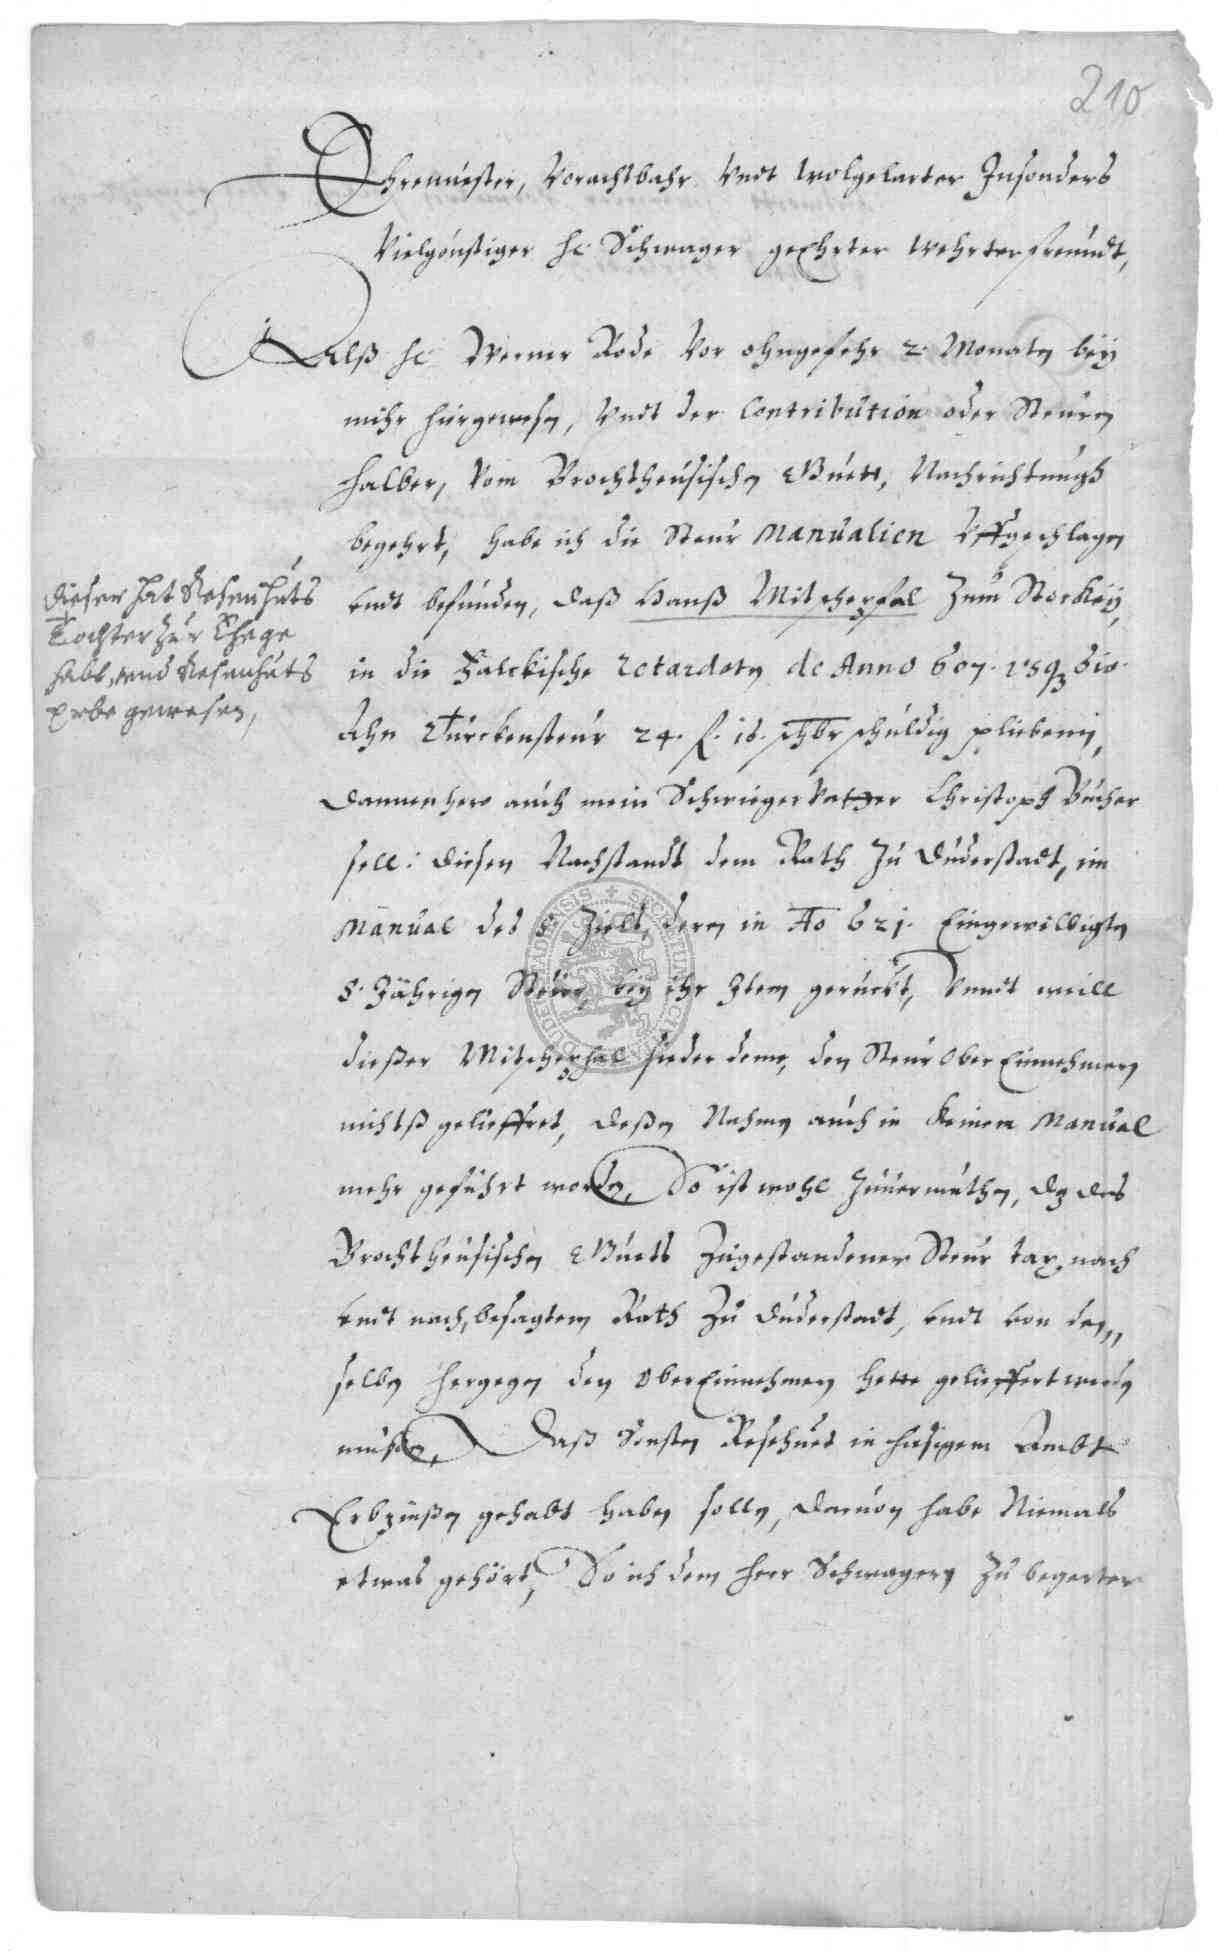 210
Ehrnuester, Vorachtbahr Undt Wolgelarter Insonders
Vielgönstiger H. Schwager geehrter wehrter freündt,
Alß H. Werner Rode Vor ohngefehr 2. Monaten beÿ
mihr hiergewesen, Undt der Contribution oder Steuren
halber, Vom Brochtheusischen Guett, Nachrichtungh
begehrt, habe ich die Steur Manualien Uffgeschlagen
undt befunden, daß Hanß Mitscherfal Zum Stockeÿ,
in die Falckische retardaten de Anno 607. 610.
Ahn Türckensteur 24. f. 16. schuldig plieben,
Dannenhero auch mein Schwieger Vatter Christoph Bücher
sell: diesen Nachstandt dem Rath Zu Duderstadt, im
Manual des 8. Zielß, deren in Ao 621. Eingewilligten
8. Jährigen Steur, beÿ gerückt, Unndt weill
dießer Mitscherfal sieder deme, den Steur Ober Einnehmern
nichtß gelieffert, deßen Nahmen auch in Keinem Manual
mehr geführt worden, So ist wohl Zuuermuthen, dz des
Brochtheusischen Guetts Zugestandener Steur tax, nach
undt nach, besagtem Rath Zu Duderstadt, undt von den„
selben hergegen den OberEinnehmern hette gelieffert werden
müßen, Daß Sonsten Resehuet in hiesigem Ambt
Erbzinßen gehabt haben sollen, daruon habe Niemals
etwas gehört, So ich dem Herr Schwagern Zu begerter
Dieser hat Resenhuts
Tochter zur Ehe ge
habt, und Resenhuts
Erbe gewesen,
SIGILLUM CIVITATIS DUDERSTADENSIS